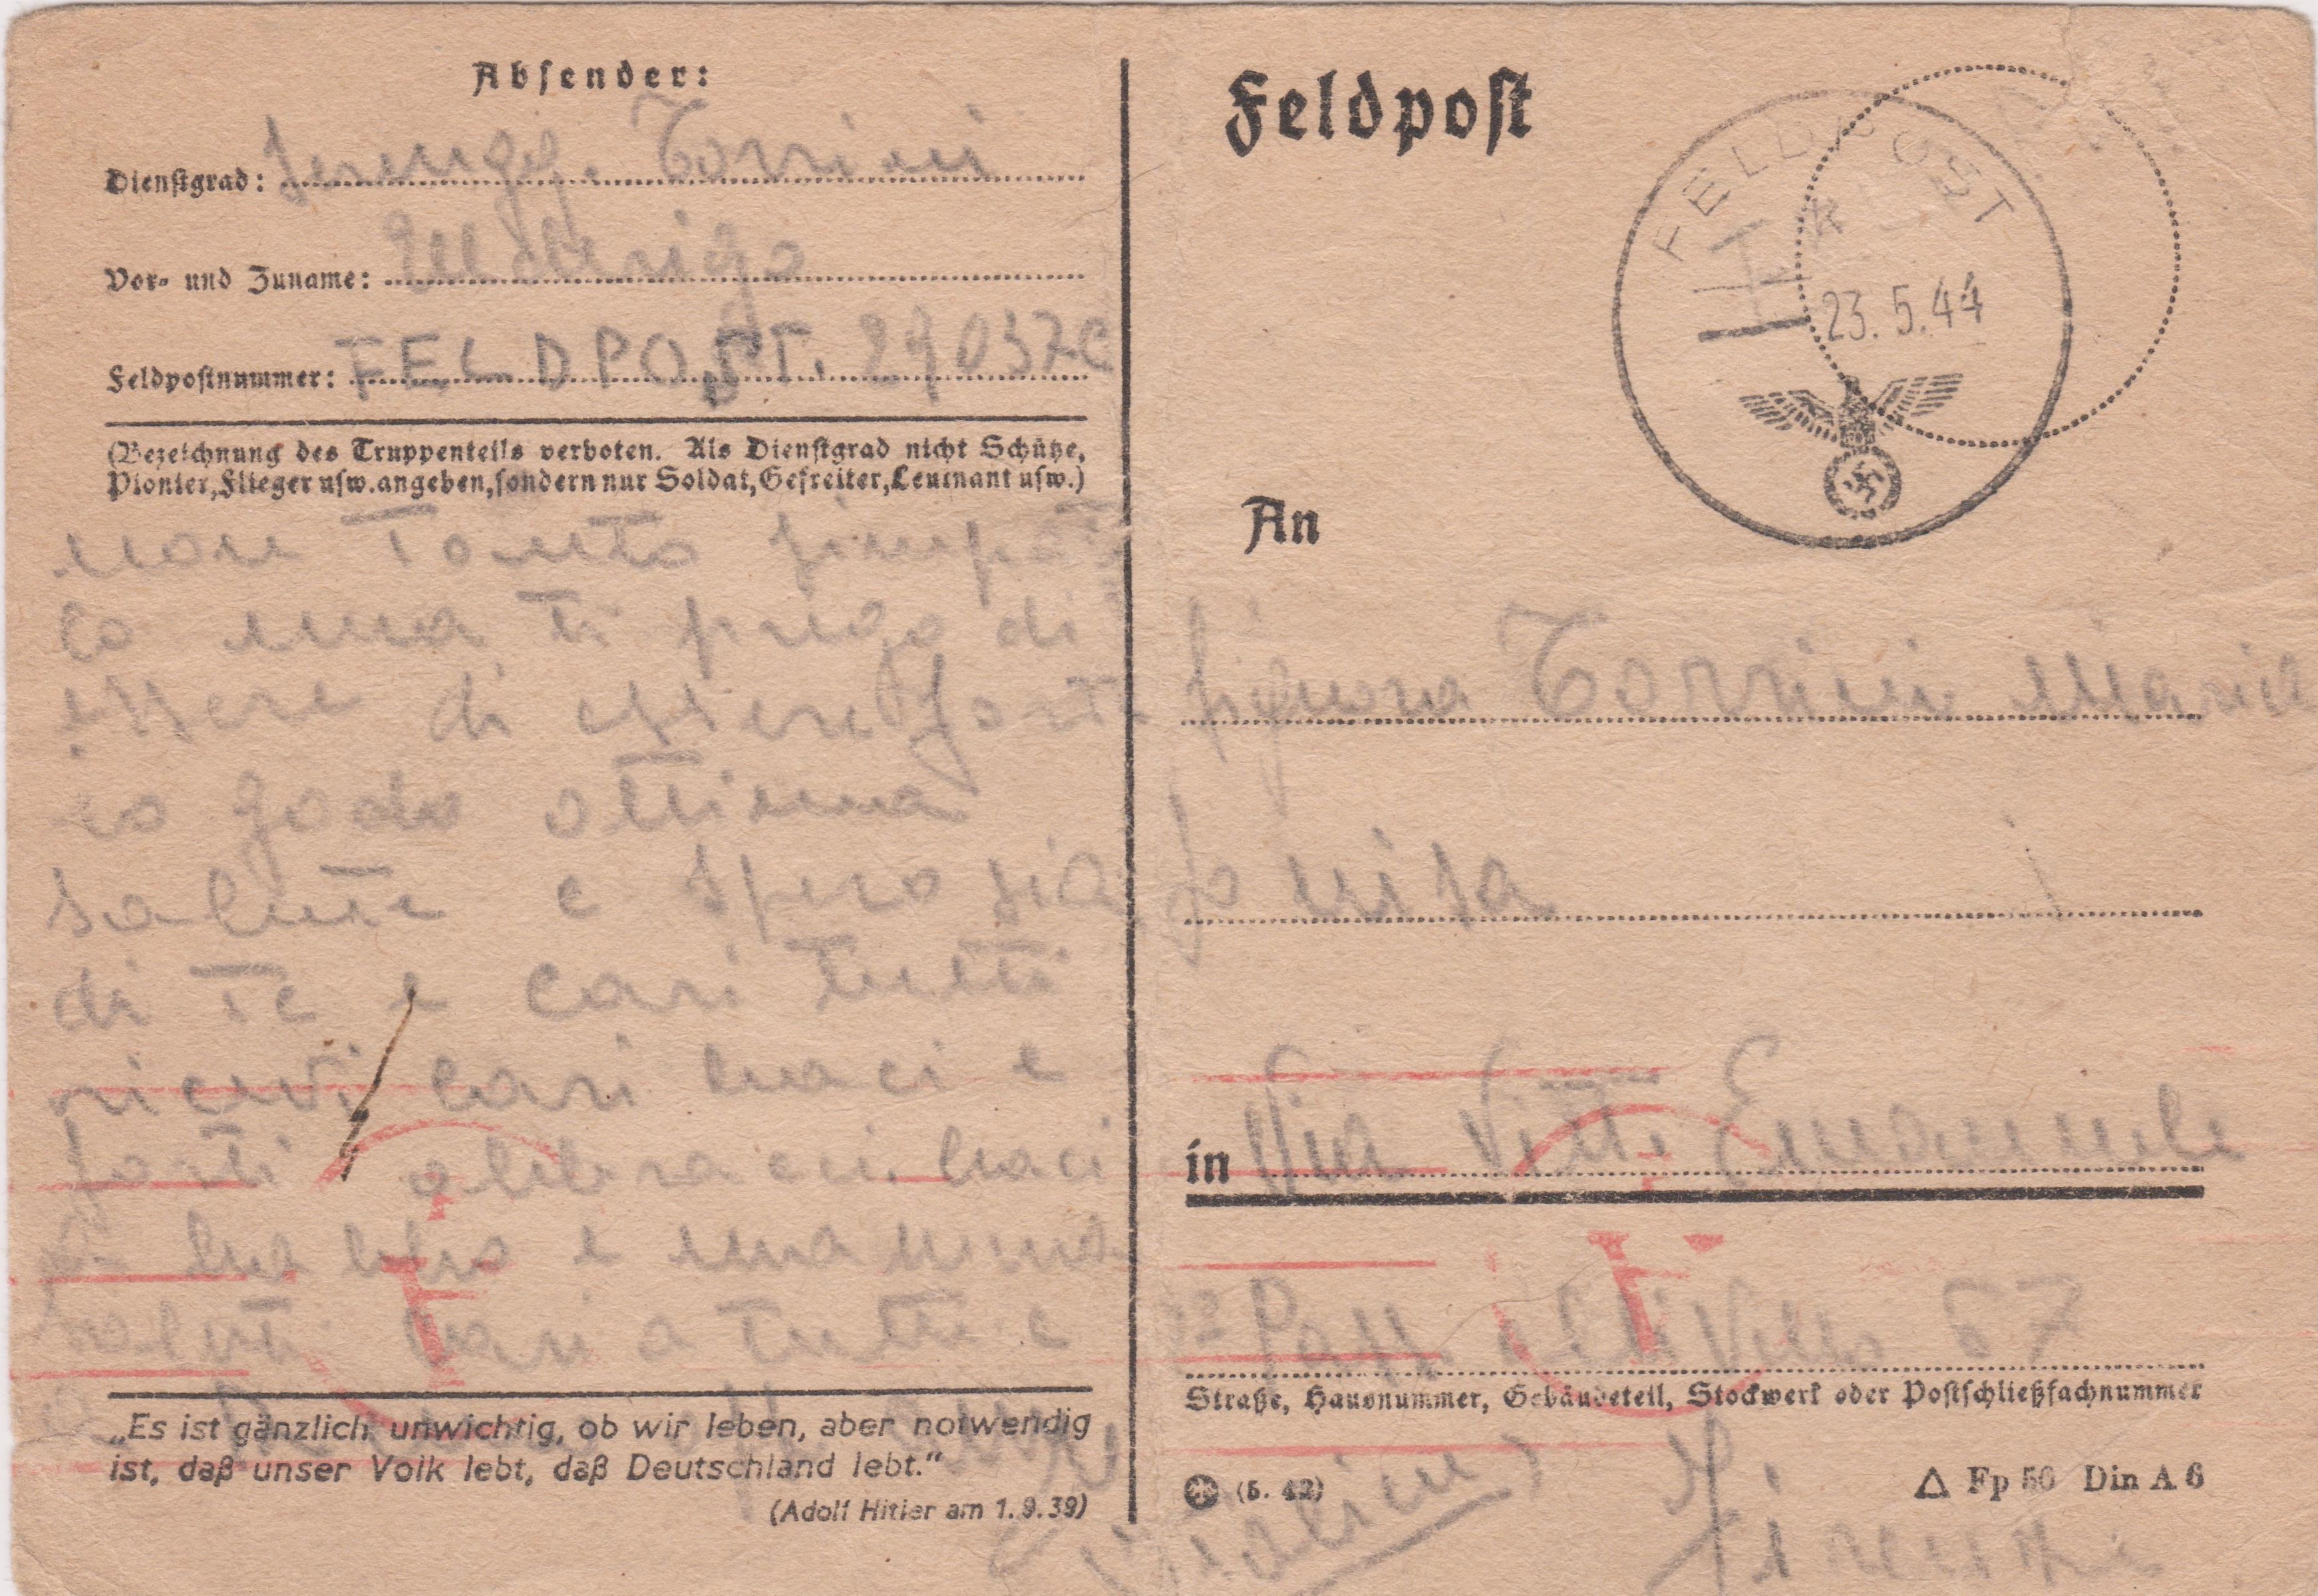 Absender:
Dienstgrad: Sergg. Torrini
Vor- und Zuname:
Feldpostnummer: FELDPOST. 29037C
(Bezeichnung des Truppenteils verboten. Als Dienstgrad nicht Schütze,
Pionier, Flieger usw. angeben, sondern nur Soldat, Gefreiter, Leutnant usw.)
non tanto simpati
co ma ti prego di
essere di essere forte
io godo ottima
salute e spero sia
di te e cari tutti
ricevi cari baci e
forti abbracci. baci
babbo e mamma
saluti cari a tutti e
„Es ist gänzlich unwichtig, ob wir leben, aber notwendig
ist, daß unser Volk lebt, daß Deutschland lebt.“
(Adolf Hitler am 1. 9. 39)
Feldpost
FELDPOST
23.5.44
An
Signora Torrini Maria
in Via Vitt. Emanuele
67
Straße, Hausnummer, Gebäudeteil, Stockwerk oder Postschließfachnummer
(5. 42)
Fp 56 Din A 6
Firenze
(Italien)